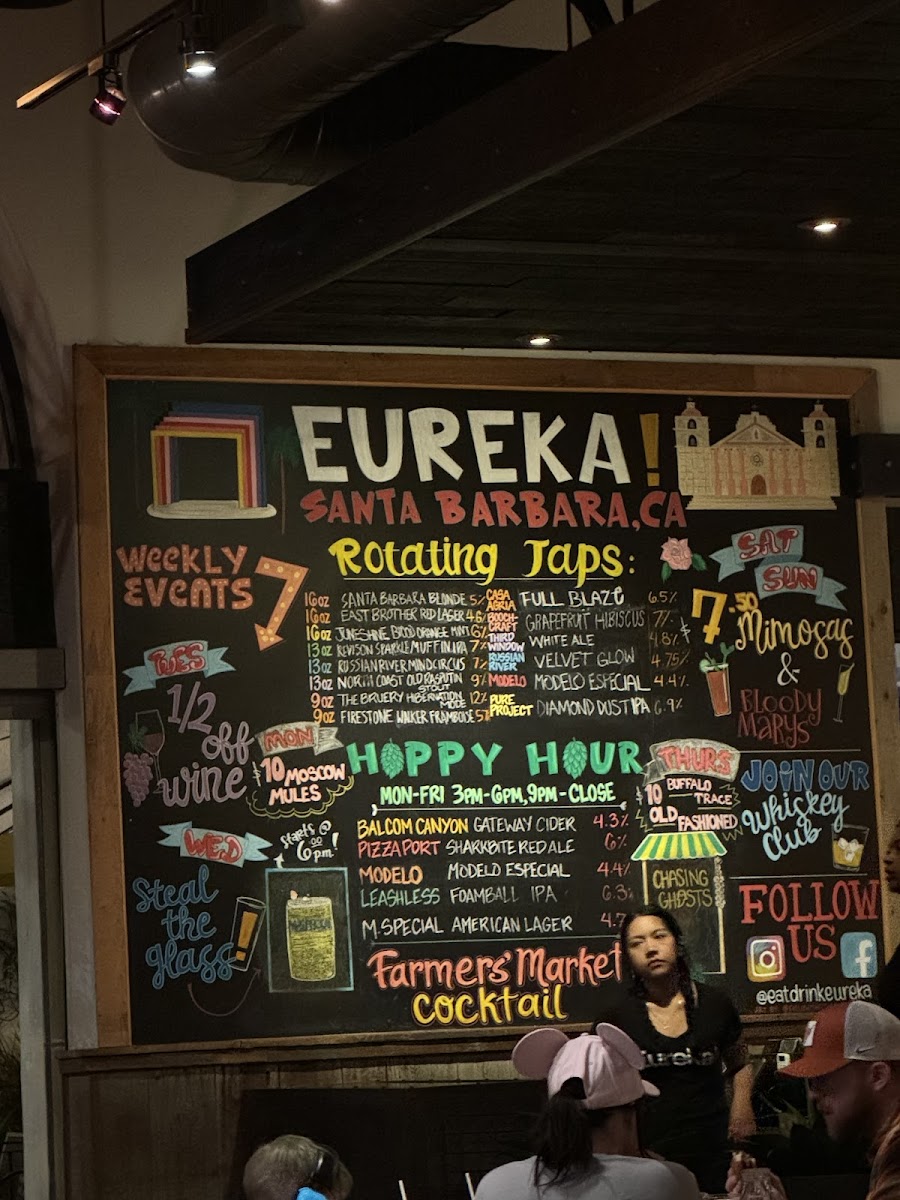 EUREKA!
SANTA BARBARA, CA
WEEKLY
EVENTS
Rotating Taps:
16oz SANTA BARBARA BLONDE 5%
16oz EAST BROTHER RED LAGER 4.6%
16oz JUNESHINE BLOOD ORANGE MINT 6%
13oz REVISON SPARKLE MUFFIN IPA 7%
13oz RUSSIAN RIVER MIND CIRCUS 7%
13oz NORTH COAST OLD RASPUTIN STOUT 9%
9oz THE BRUERY HIBERNATION MODE 12%
9oz FIRESTONE WALKER FRAMBOISE 5%
CASA AGRIA FULL BLAZE 6.5%
BOOCHCRAFT GRAPEFRUIT HIBISCUS 7%
THIRD WINDOW WHITE ALE 4.8%
RUSSIAN RIVER VELVET GLOW 4.75%
MODELO MODELO ESPECIAL 4.4%
PURE PROJECT DIAMOND DUST IPA 6.9%
SAT
SUN
$7.50
Mimosas
&
BLOODY
MARYS
TUES
1/2
off
wine
MON
$10 MOSCOW
MULES
HOPPY HOUR
MON-FRI 3PM-6PM, 9PM-CLOSE
BALCOM CANYON GATEWAY CIDER 4.3%
PIZZA PORT SHARKBITE RED ALE 6%
MODELO MODELO ESPECIAL 4.4%
LEASHLESS FOAMBALL IPA 6.3%
M.SPECIAL AMERICAN LAGER 4.7
THURS
$10 BUFFALO
TRACE
OLD FASHIONED
JOIN OUR
Whiskey
Club
WED
STARTS @
6:00 pm!
Steal
the
glass!
CHASING
GHOSTS
Farmers' Market
cocktail
FOLLOW
US
f
@eatdrinkeureka
eureka!